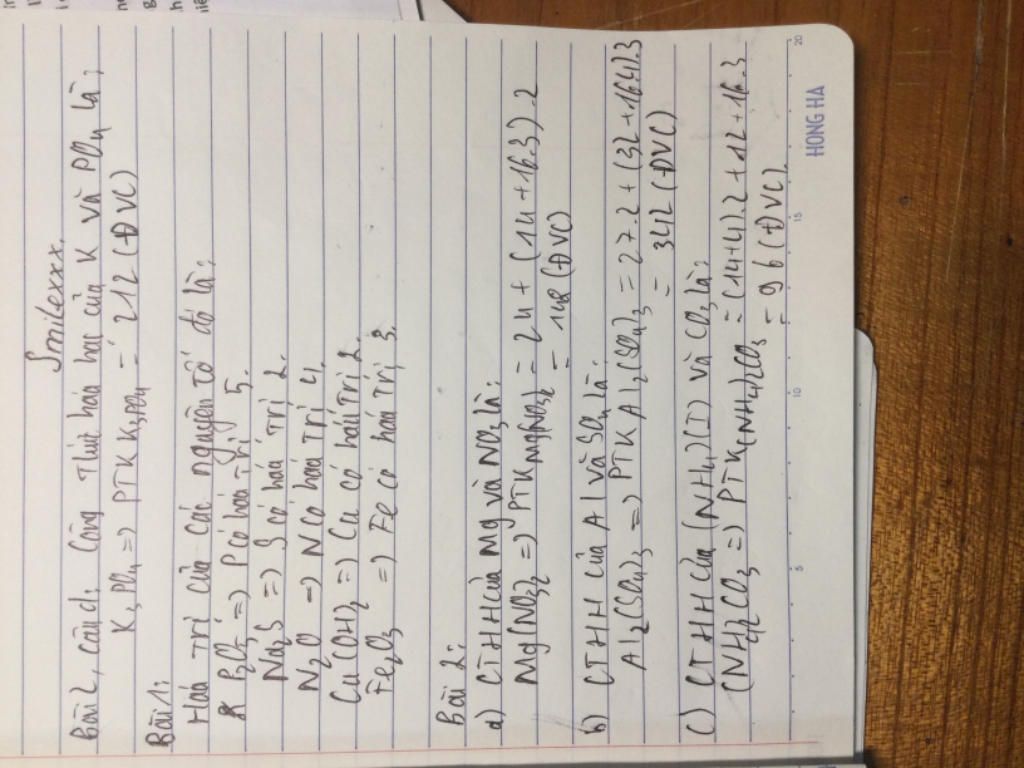 Smilexxx.
Bài 2, câu d: Công thức hóa học của K và PO4 là:
K3PO4 => PTK K3PO4 = 212 (ĐVC)
Bài 1:
Hóa trị của các nguyên tố đó là:
P2O5 => P có hóa trị 5.
Na2S => S có hóa trị 2.
N2O => N có hóa trị 4.
Cu(OH)2 => Cu có hóa trị 2.
Fe2O3 => Fe có hóa trị 3.
Bài 2:
a) CTHH của Mg và NO3 là:
Mg(NO3)2 => PTK Mg(NO3)2 = 24 + (14 + 16.3).2
= 148 (ĐVC)
b) CTHH của Al và SO4 là:
Al2(SO4)3 => PTK Al2(SO4)3 = 27.2 + (32 + 16.4).3
= 342 (ĐVC)
c) CTHH của (NH4)(I) và CO3 là:
(NH4)2CO3 => PTK (NH4)2CO3 = (14+4).2 + 12 + 16.3
= 96 (ĐVC)
5 10 15 20
HONG HA